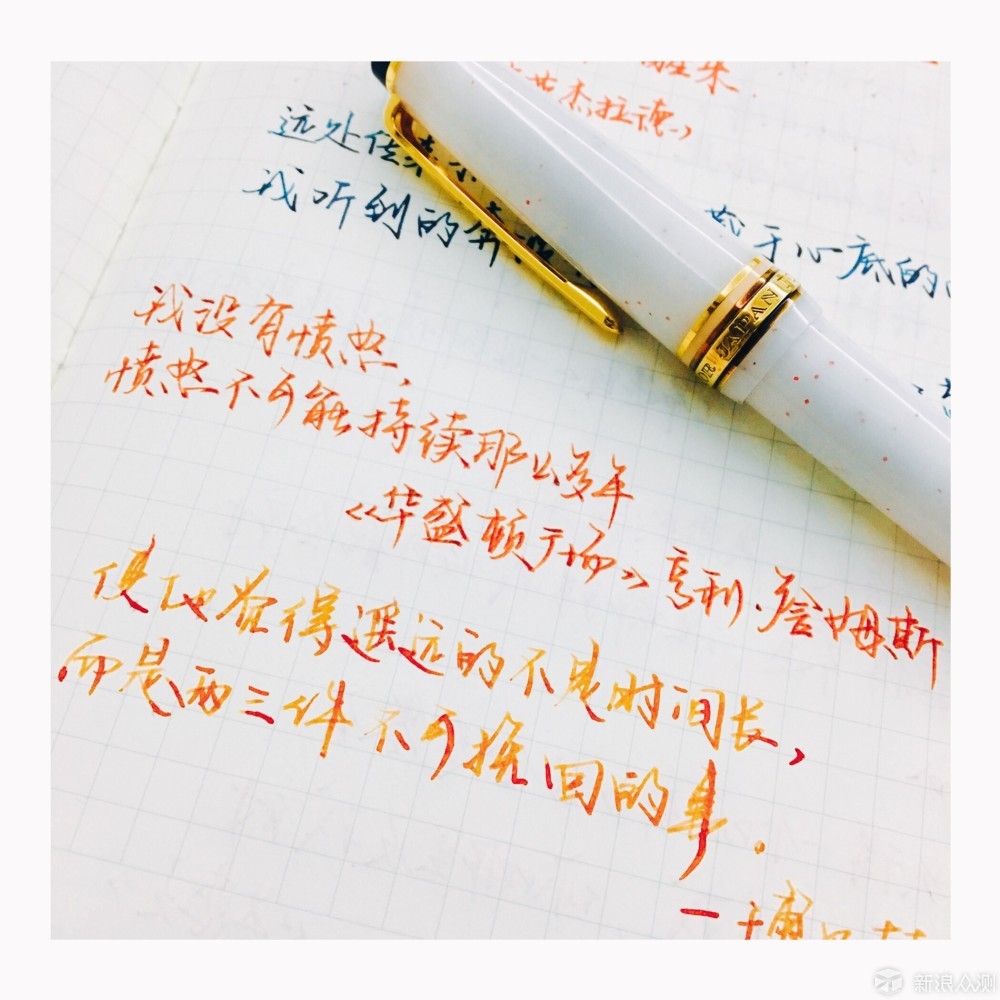 杰拉德
远处传来
于心底的
我听到的奔
JAPAN
我没有愤怒,
愤怒不可能持续那么多年
《华盛顿广场》亨利·詹姆斯
使他觉得遥远的不是时间长,
而是两三件不可挽回的事。
一博
新浪众测